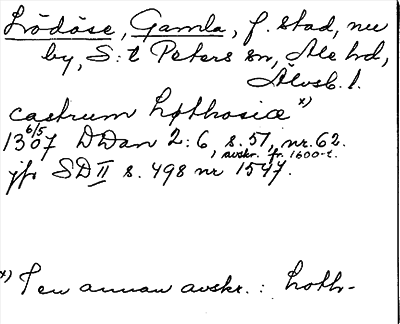 Lödöse, Gamla, f. stad, nu
by, S:t Peters sn, Ale hd,
Älvsb. l.
castrum Løthosiæ x)
1307 6/5 DDan 2:6, s. 51, nr. 62.
, avskr. fr. 1600-t.
jfr SD II s. 498 nr 1547.
x) I en annan avskr.: Loth-